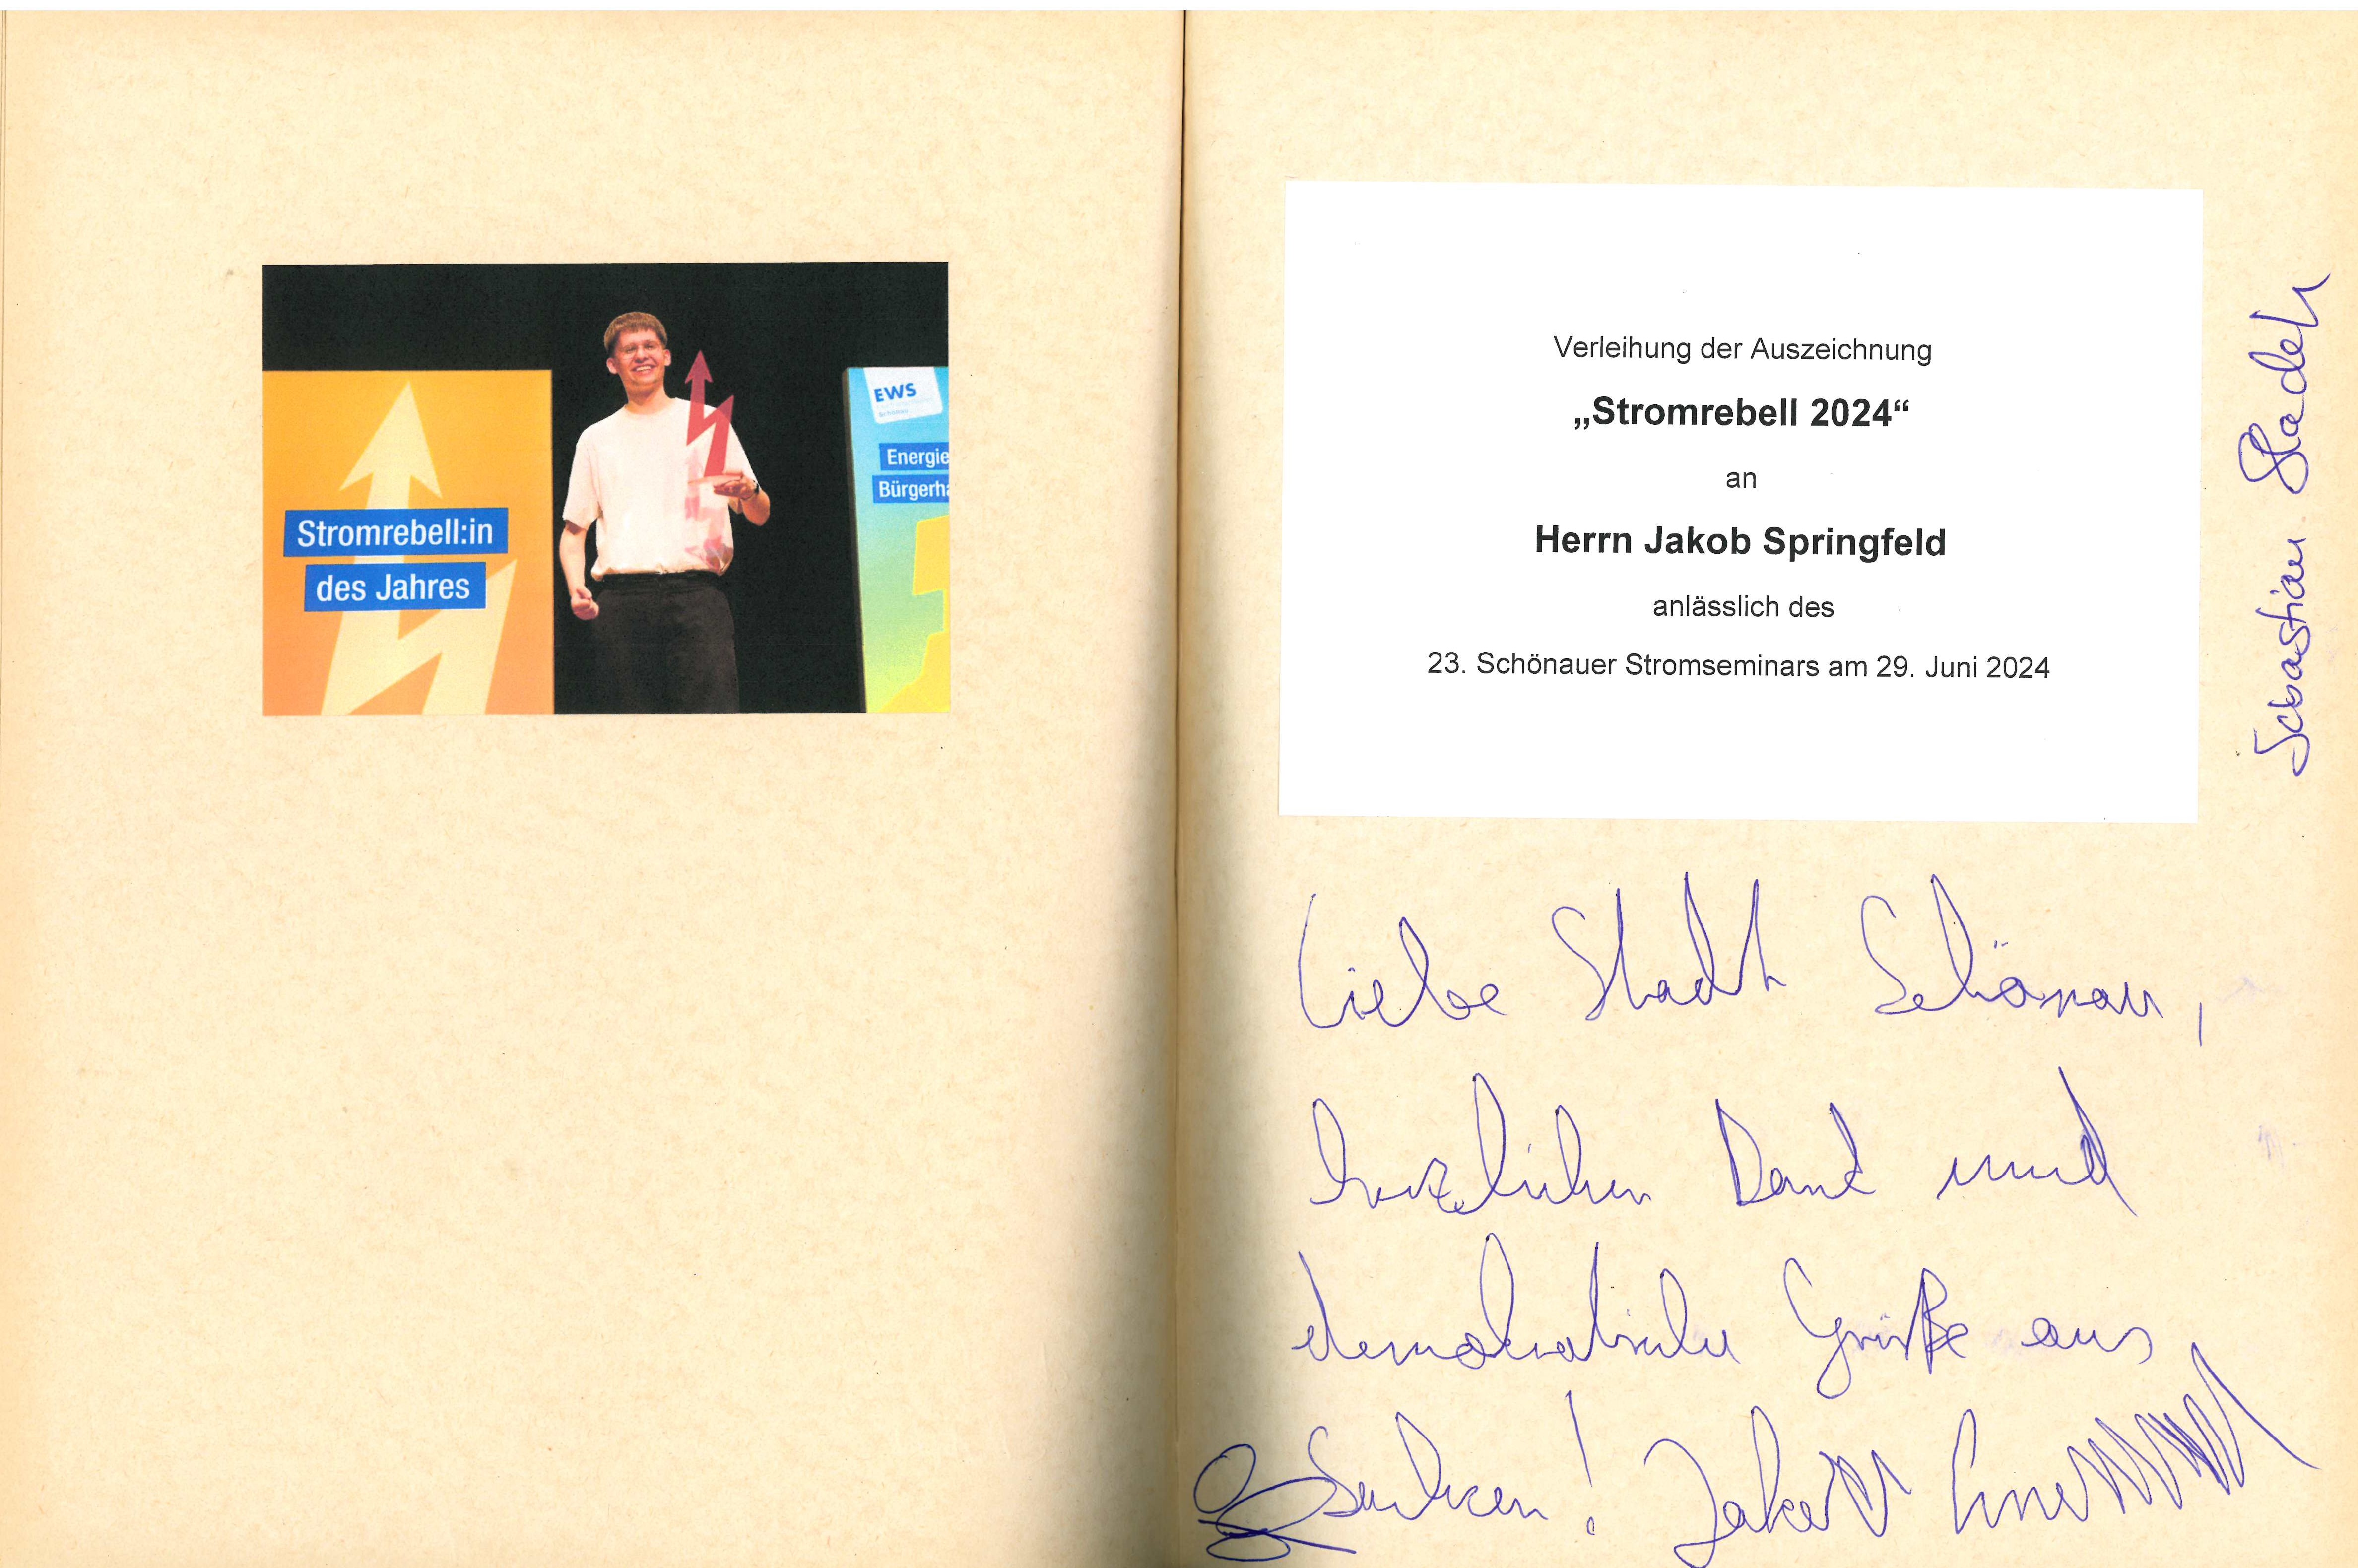 Stromrebell:in
des Jahres
EWS
Energie
Bürgerha
Verleihung der Auszeichnung
„Stromrebell 2024“
an
Herrn Jakob Springfeld
anlässlich des
23. Schönauer Stromseminars am 29. Juni 2024
Sebastian Sladek
Liebe Stadt Schönau,
herzlichen Dank und
demokratische Grüße aus
Sachsen! Jakob